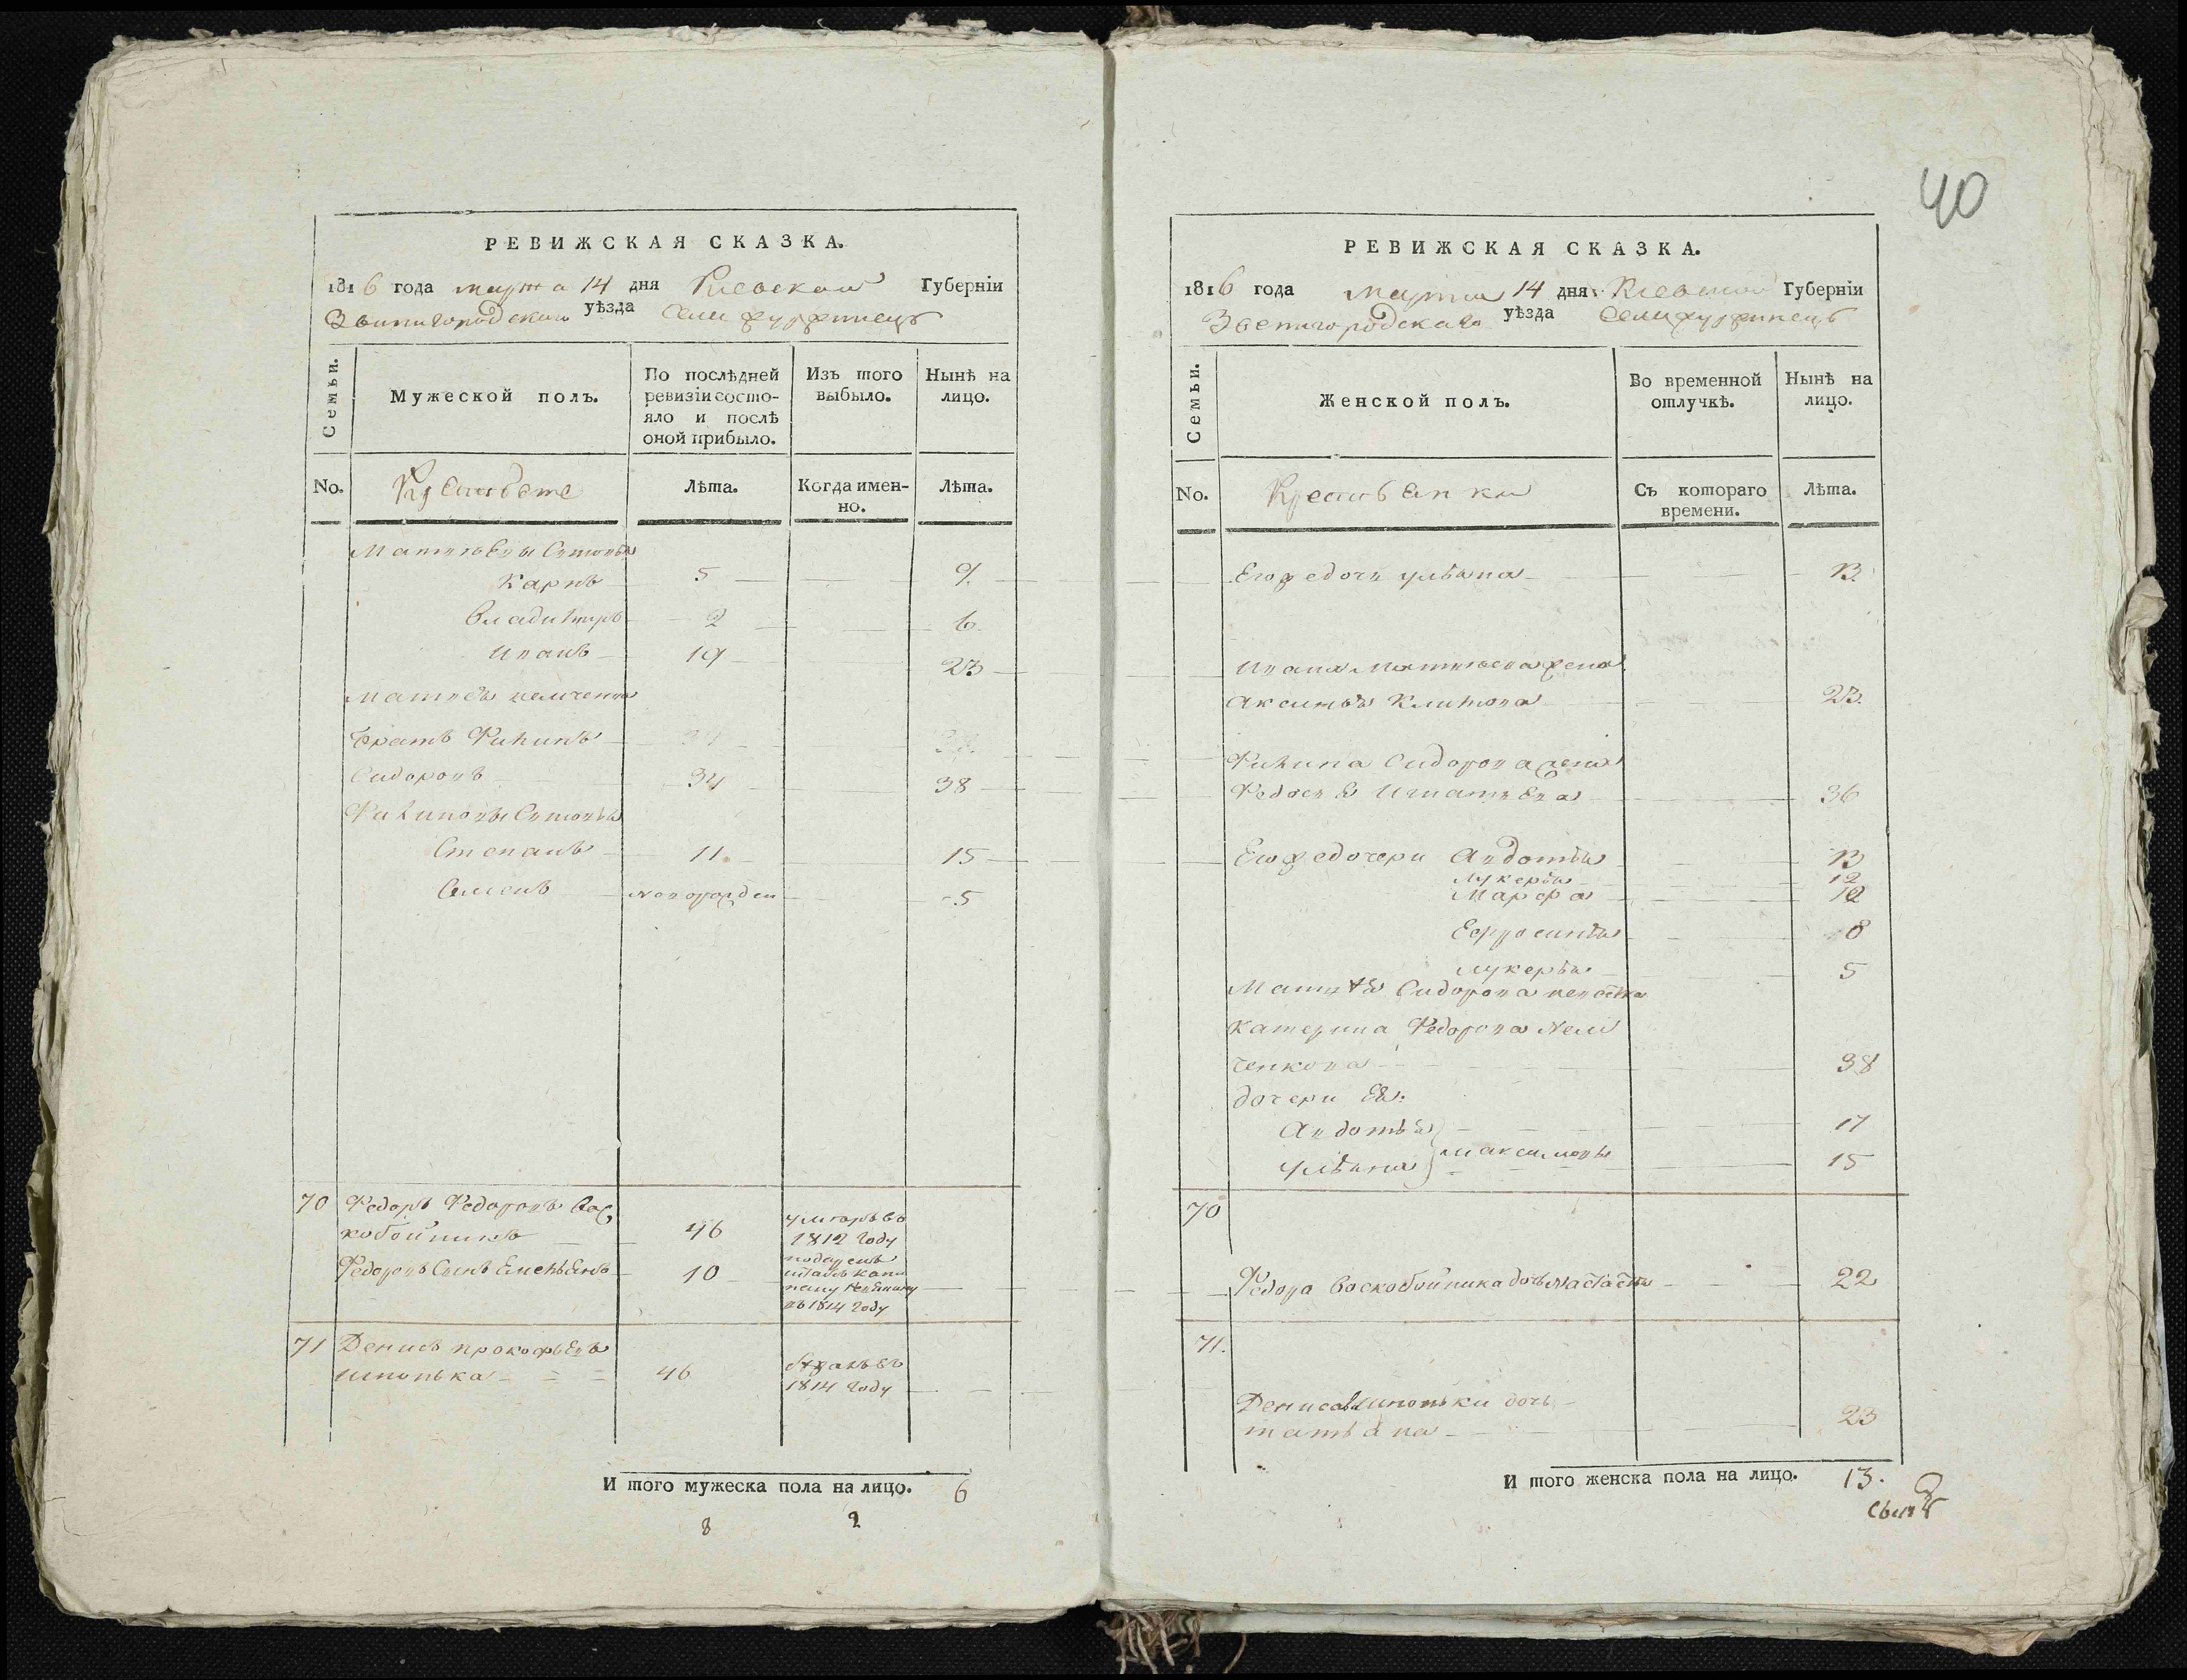 РЕВИЖСКАЯ СКАЗКА.
1816 года марта 14 дня Киевской Губернїи
Звенигородского уѣзда
Семьи.
Мужеской полъ.
По послѣдней ревизїи состояло и послѣ оной прибыло.
Изъ того выбыло.
Нынѣ на лицо.
No.
Крестьяне
Лѣта.
Когда именно.
Лѣта.
Карпъ 5 9
Владимиръ 2 6
Иванъ 19 23
братъ Филипъ
Сидоровъ 34 38
Филиповы Сыновья
Степанъ 11 15
Семенъ новорожден 5
70 Федоръ Федоровъ Вос
кобойникъ 46 умеръ въ 1812 году
Федоровъ Сынъ 10 въ 1814 году
71 Денисъ прокофьевъ
шпонька 46 1814 году
И того мужеска пола на лицо. 6
8 2
40
РЕВИЖСКАЯ СКАЗКА.
1816 года марта 14 дня Киевской Губернїи
Звенигородскаго уѣзда
Семьи.
Женской полъ.
Во временной отлучкѣ.
Нынѣ на лицо.
No.
Крестьянки
Съ котораго времени.
Лѣта.
Его же дочь ульяна 13
Ивана Матвеева жена
Аксинья Климова 23
Филипа Сидорова жена
Федосья Игнатьева 36
Его же дочери Авдотья 13
Лукерья 12
Марфа 12
Ефросинья 8
Лукерья 5
Матвея Сидорова невестка
Катерина Федорова Нели
ченкова 38
дочери Ея:
Авдотья 17
Ульяна Максимовы 15
70
Федора Воскобойника дочь Настасья 22
71.
Дениса Шпоньки дочь
татьяна 23
И того женска пола на лицо. 13.